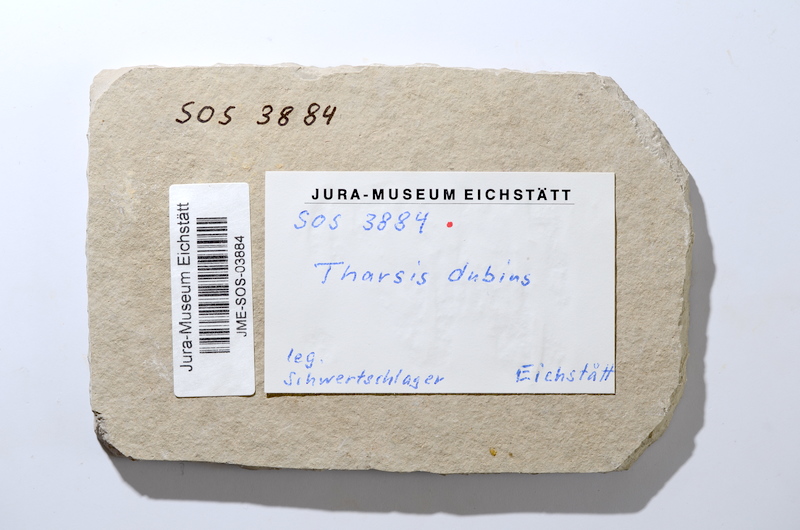 SOS 3884
Jura-Museum Eichstätt
JME-SOS-03884
JURA-MUSEUM EICHSTÄTT
SOS 3884
Tharsis dubius
leg.
Schwertschlager
Eichstätt